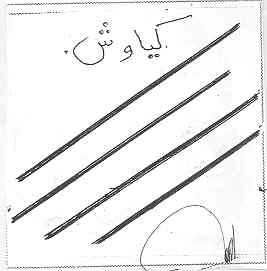 کیاوش